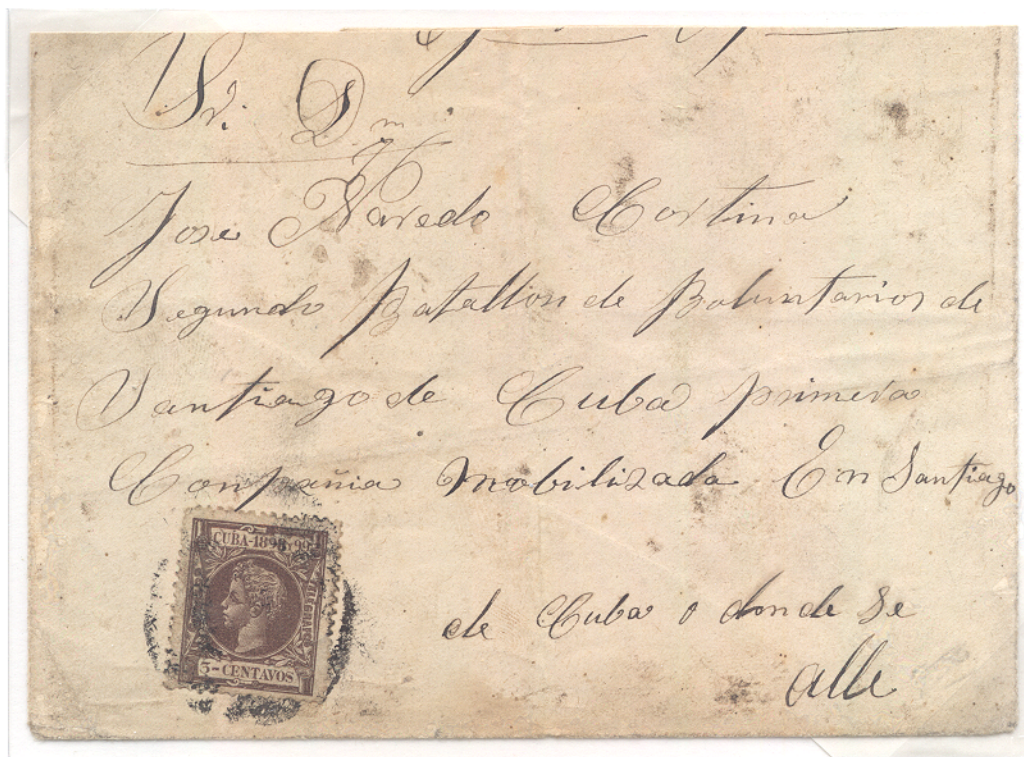 Sr. Dn
Jose Naredo Cortina
Segundo Batallion de Boluntarios de
Santiago de Cuba primera
Conpañia mobilizada En Santiago
de Cuba o donde se
alle
CUBA-1898 Y 99
TELEGRAFOS
3-CENTAVOS